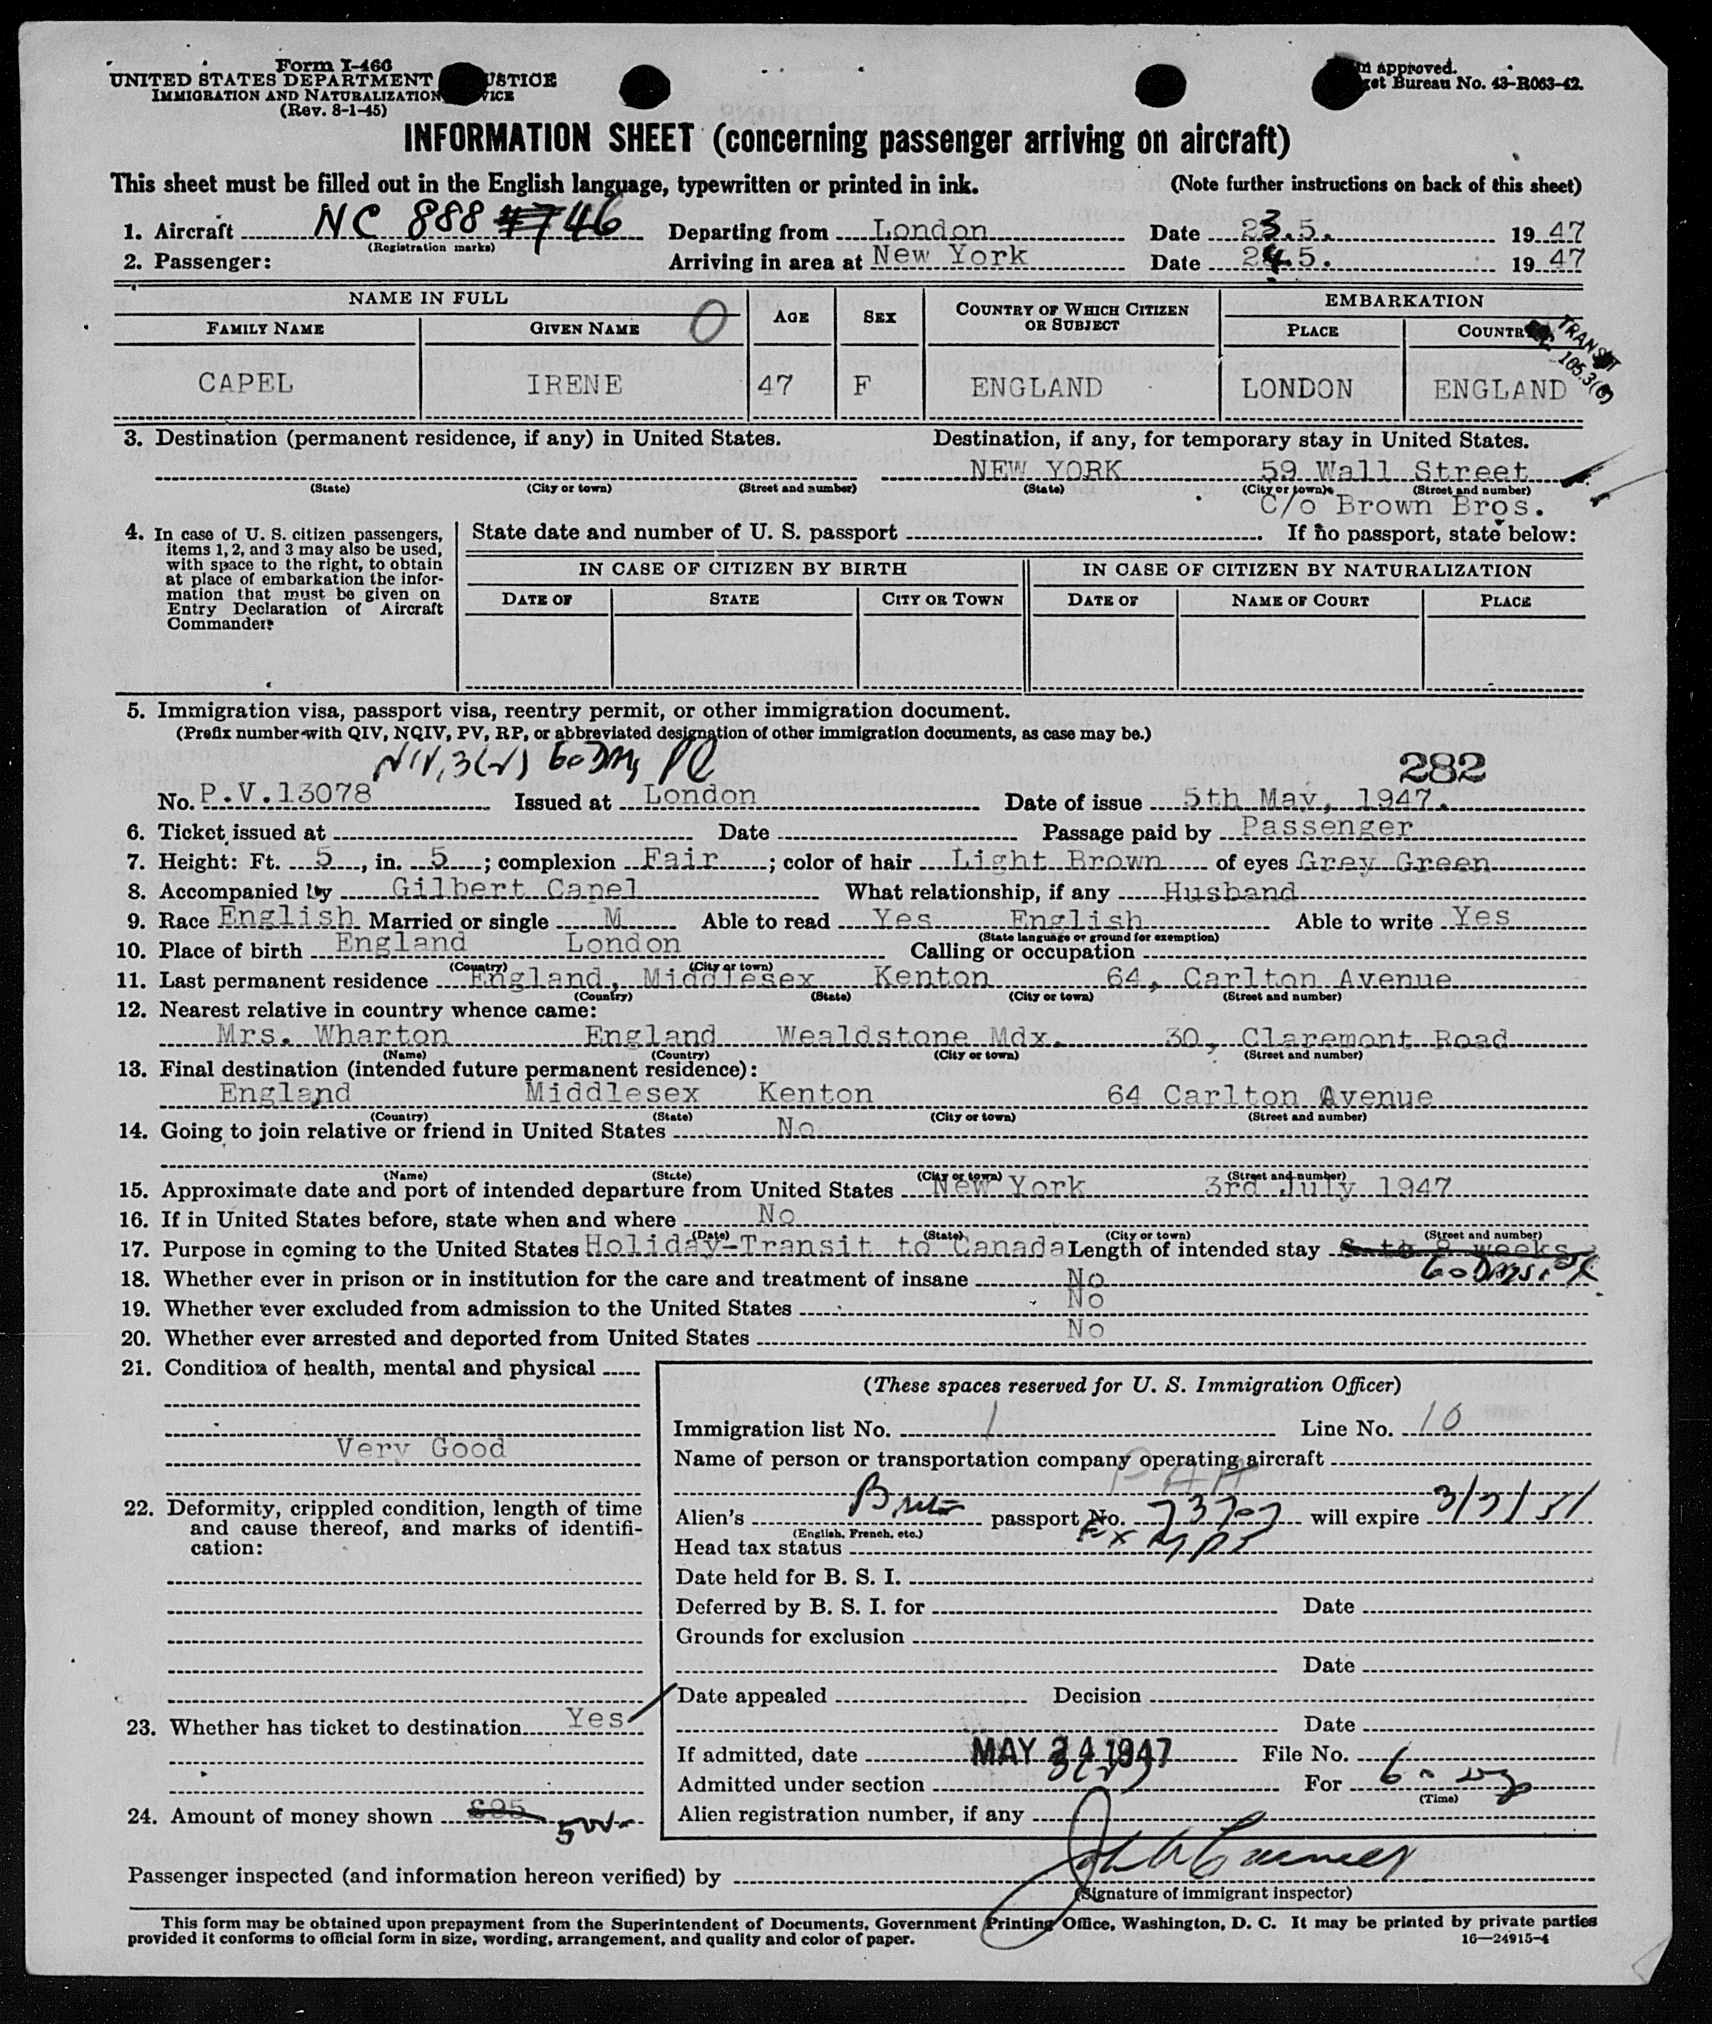 Form I-466
UNITED STATES DEPARTMENT JUSTICE
IMMIGRATION AND NATURALIZATION SERVICE
(Rev. 8-1-45)
approved.
Bureau No. 43-R063-42.
INFORMATION SHEET (concerning passenger arriving on aircraft)
This sheet must be filled out in the English language, typewritten or printed in ink. (Note further instructions on back of this sheet)
1. Aircraft NC 888 46 Departing from London Date 23.5. 1947
(Registration marks)
2. Passenger: Arriving in area at New York Date 24.5. 1947
NAME IN FULL AGE SEX COUNTRY OF WHICH CITIZEN OR SUBJECT EMBARKATION
FAMILY NAME GIVEN NAME 0 PLACE COUNTRY
TRANSIT
105.3(6)
CAPEL IRENE 47 F ENGLAND LONDON ENGLAND
3. Destination (permanent residence, if any) in United States. Destination, if any, for temporary stay in United States.
NEW YORK 59 Wall Street
(State) (City or town) (Street and number) (State) (City or town) (Street and number)
C/o Brown Bros.
4. In case of U. S. citizen passengers, items 1, 2, and 3 may also be used, with space to the right, to obtain at place of embarkation the information that must be given on Entry Declaration of Aircraft Commander:
State date and number of U. S. passport . If no passport, state below:
IN CASE OF CITIZEN BY BIRTH IN CASE OF CITIZEN BY NATURALIZATION
DATE OF STATE CITY OR TOWN DATE OF NAME OF COURT PLACE
5. Immigration visa, passport visa, reentry permit, or other immigration document.
(Prefix number with QIV, NQIV, PV, RP, or abbreviated designation of other immigration documents, as case may be.)
NIV, 3(2) 60 Days 282
No. P.V.13078 Issued at London Date of issue 5th May, 1947.
6. Ticket issued at Date Passage paid by Passenger
7. Height: Ft. 5, in. 5; complexion Fair; color of hair Light Brown of eyes Grey Green
8. Accompanied by Gilbert Capel What relationship, if any Husband
9. Race English Married or single M Able to read Yes English Able to write Yes
(State language or ground for exemption)
10. Place of birth England London Calling or occupation
(Country) (City or town)
11. Last permanent residence England, Middlesex Kenton 64, Carlton Avenue
(Country) (State) (City or town) (Street and number)
12. Nearest relative in country whence came:
Mrs. Wharton England Wealdstone Mdx. 30, Claremont Road
(Name) (Country) (City or town) (Street and number)
13. Final destination (intended future permanent residence):
England Middlesex Kenton 64 Carlton Avenue
(Country) (State) (City or town) (Street and number)
14. Going to join relative or friend in United States No
(Name) (State) (City or town) (Street and number)
15. Approximate date and port of intended departure from United States New York 3rd July 1947
16. If in United States before, state when and where No
(Date) (State) (City or town) (Street and number)
17. Purpose in coming to the United States Holiday-Transit to Canada Length of intended stay 6 to 8 weeks
60 Days
18. Whether ever in prison or in institution for the care and treatment of insane No
19. Whether ever excluded from admission to the United States No
20. Whether ever arrested and deported from United States No
21. Condition of health, mental and physical
Very Good
22. Deformity, crippled condition, length of time and cause thereof, and marks of identification:
23. Whether has ticket to destination Yes
24. Amount of money shown
(These spaces reserved for U. S. Immigration Officer)
Immigration list No. 1 Line No. 10
Name of person or transportation company operating aircraft
PAA
Alien's passport No. 73707 will expire 3/7/51
(English, French, etc.)
Head tax status
Date held for B. S. I.
Deferred by B. S. I. for Date
Grounds for exclusion
Date
Date appealed Decision
Date
If admitted, date MAY 24 1947 File No.
Admitted under section 3(2) For 60 Days
(Time)
Alien registration number, if any
Passenger inspected (and information hereon verified) by
(Signature of immigrant inspector)
This form may be obtained upon prepayment from the Superintendent of Documents, Government Printing Office, Washington, D. C. It may be printed by private parties
provided it conforms to official form in size, wording, arrangement, and quality and color of paper. 16—24915-4